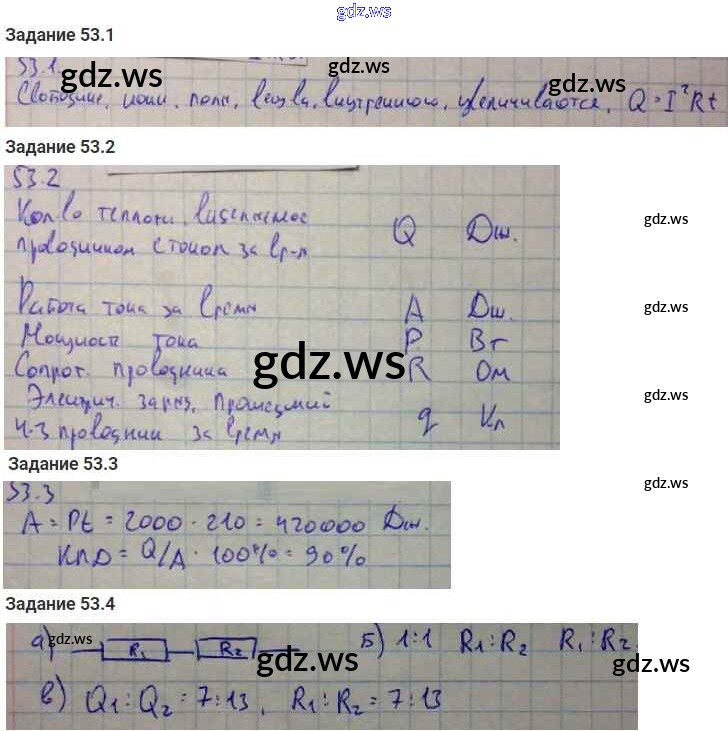 gdz.ws
Задание 53.1
53.1.
gdz.ws
gdz.ws
gdz.ws
Свободные, ионы, полн, вещва, внутреннюю, увеличиваются, Q = I²Rt
Задание 53.2
53.2
Кол-во теплоты, выделяемое
проводником с током за вр-я Q Дж.
gdz.ws
Работа тока за время A Дж.
gdz.ws
Мощность тока P Вт
Сопрот. проводника R Ом
gdz.ws
Электрич. заряд, прошедший
ч-з проводник за время q Кл
gdz.ws
Задание 53.3
gdz.ws
53.3
A = Pt = 2000 · 210 = 420000 Дж.
КПД = Q/A · 100% = 90%
Задание 53.4
а) R₁ R₂ Б) 1:1 R₁:R₂ R₁:R₂
gdz.ws
gdz.ws
gdz.ws
в) Q₁:Q₂ = 7:13, R₁:R₂ = 7:13